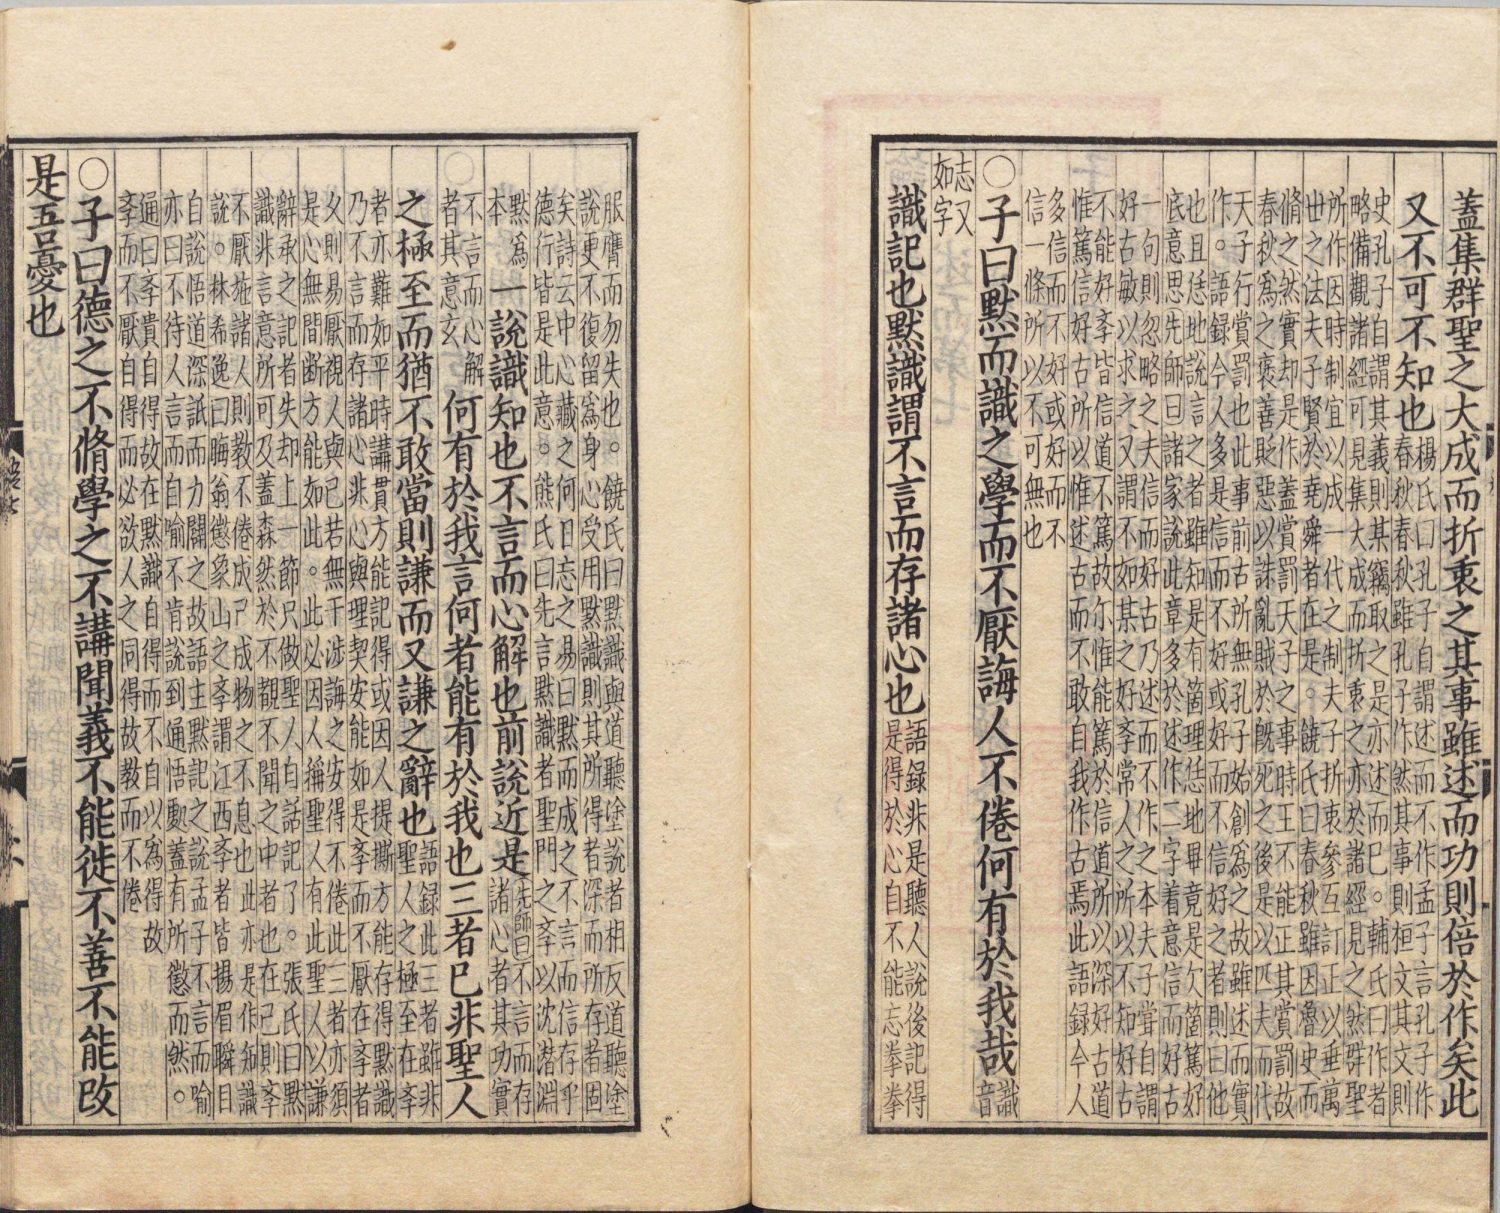 蓋集群聖之大成而折衷之其事雖述而功則倍於作矣此
又不可不知也
楊氏曰孔子自謂述而不作孟子言孔子作
春秋春秋雖孔子作然其事則桓文其文則
史孔子自謂其義則其竊取之是亦述而已。輔氏曰作者
略備觀諸經可見集大成而折衷之亦於諸經見之然群聖
所作因時制宜以成一代之制夫子折衷參互訂正以垂萬
世之法夫子賢於堯舜者在是。饒氏曰春秋雖因魯史而
脩之然實却是作蓋賞罰天子之事時王不能正其賞罰故
春秋爲之褒善貶惡以誅亂賊於旣死之後是以匹夫而代
天子行賞罰也此事前古所無孔子始創爲之故雖述而實
作。語録今人多是信而不好或好而不信好之者則曰他
也且恁地說信之者雖知是有箇理恁地畢竟是欠箇篤好
底意思先師曰諸家說此章多於述作二字着意信而好古
一句則忽略之夫信而好古乃述而不作之本夫子嘗自謂
好古敏以求之又謂不如某之好孝常人之所以不知好古
不能好孝皆信道不篤故尔惟能篤於信道所以深好古道
惟篤信好古所以惟述古而不敢自我作古焉此語録今人
多信而不好或好而不
信一條所以不可無也
○子曰默而識之學而不厭誨人不倦何有於我哉
識
音
志又
如字
識記也默識謂不言而存諸心也
語録非是聽人說後記得
是得於心自不能忘拳拳
服膺而勿失也。饒氏曰默識與道聽塗說者相反道聽塗
說更不復留爲身心受用默識則其所得者深而所存者固
矣詩云中心藏之何日忘之易曰默而成之不言而信存乎
德行皆是此意。熊氏曰先言默識者聖門之孝以沈潜淵
默爲
本
一說識知也不言而心解也前說近是
先師曰不言而存
諸心者其功實
不言而心解
者其意玄
何有於我言何者能有於我也三者已非聖人
之極至而猶不敢當則謙而又謙之辭也
語録此三者雖非
聖人之極至在孝
者亦難如平時講貫方能記得或因人提撕方能存得默識
乃不言而存諸心非心與理契安能如是孝而不厭在孝者
久則易厭視人與己若無干涉誨之安得不倦此三者亦須
是心無間断方能如此。此必因人稱聖人有此聖人以謙
辭承之記者失却上一節只做聖人自話記了。張氏曰默
識非言意所可及蓋森然於不覩不聞之中者也在己則孝
不厭施諸人則教不倦成己成物之不息也此亦是作知識
說。林希逸曰晦翁懲象山之孝謂江西孝者皆揚眉瞬目
自說悟道深詆而力闢之故語主默記之說孟子不言而喻
亦曰不待人言而自喻不肯說到通悟歟蓋有所懲而然。
通曰孝貴自得故在默識自得而不自以爲得故
孝而不厭自得而必欲人之同得故教而不倦
○子曰德之不脩學之不講聞義不能徙不善不能改
是吾憂也